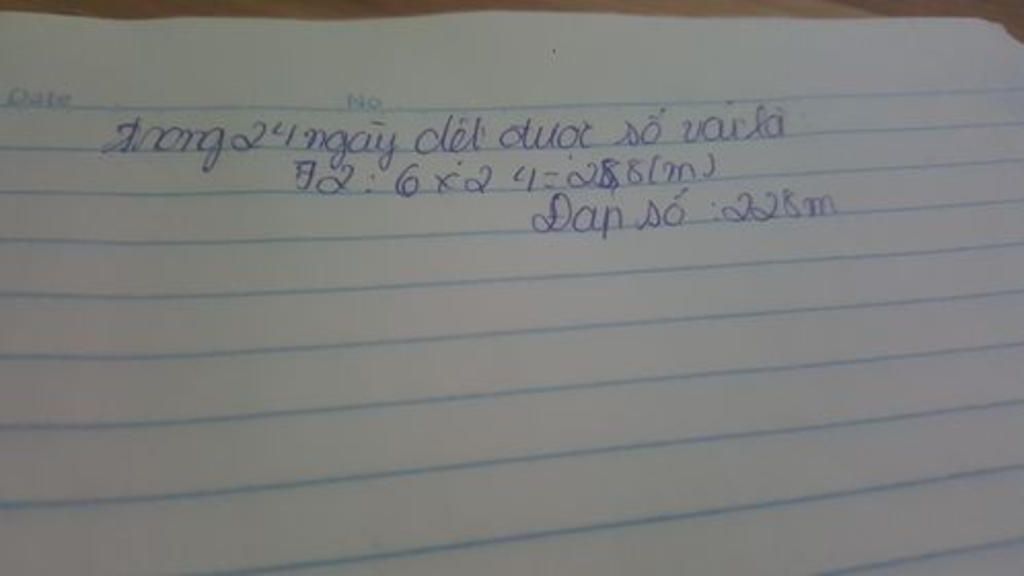 Date No
Trong 24 ngày dệt được số vải là
72 : 6 x 24 = 288 (m)
Đáp số : 228m